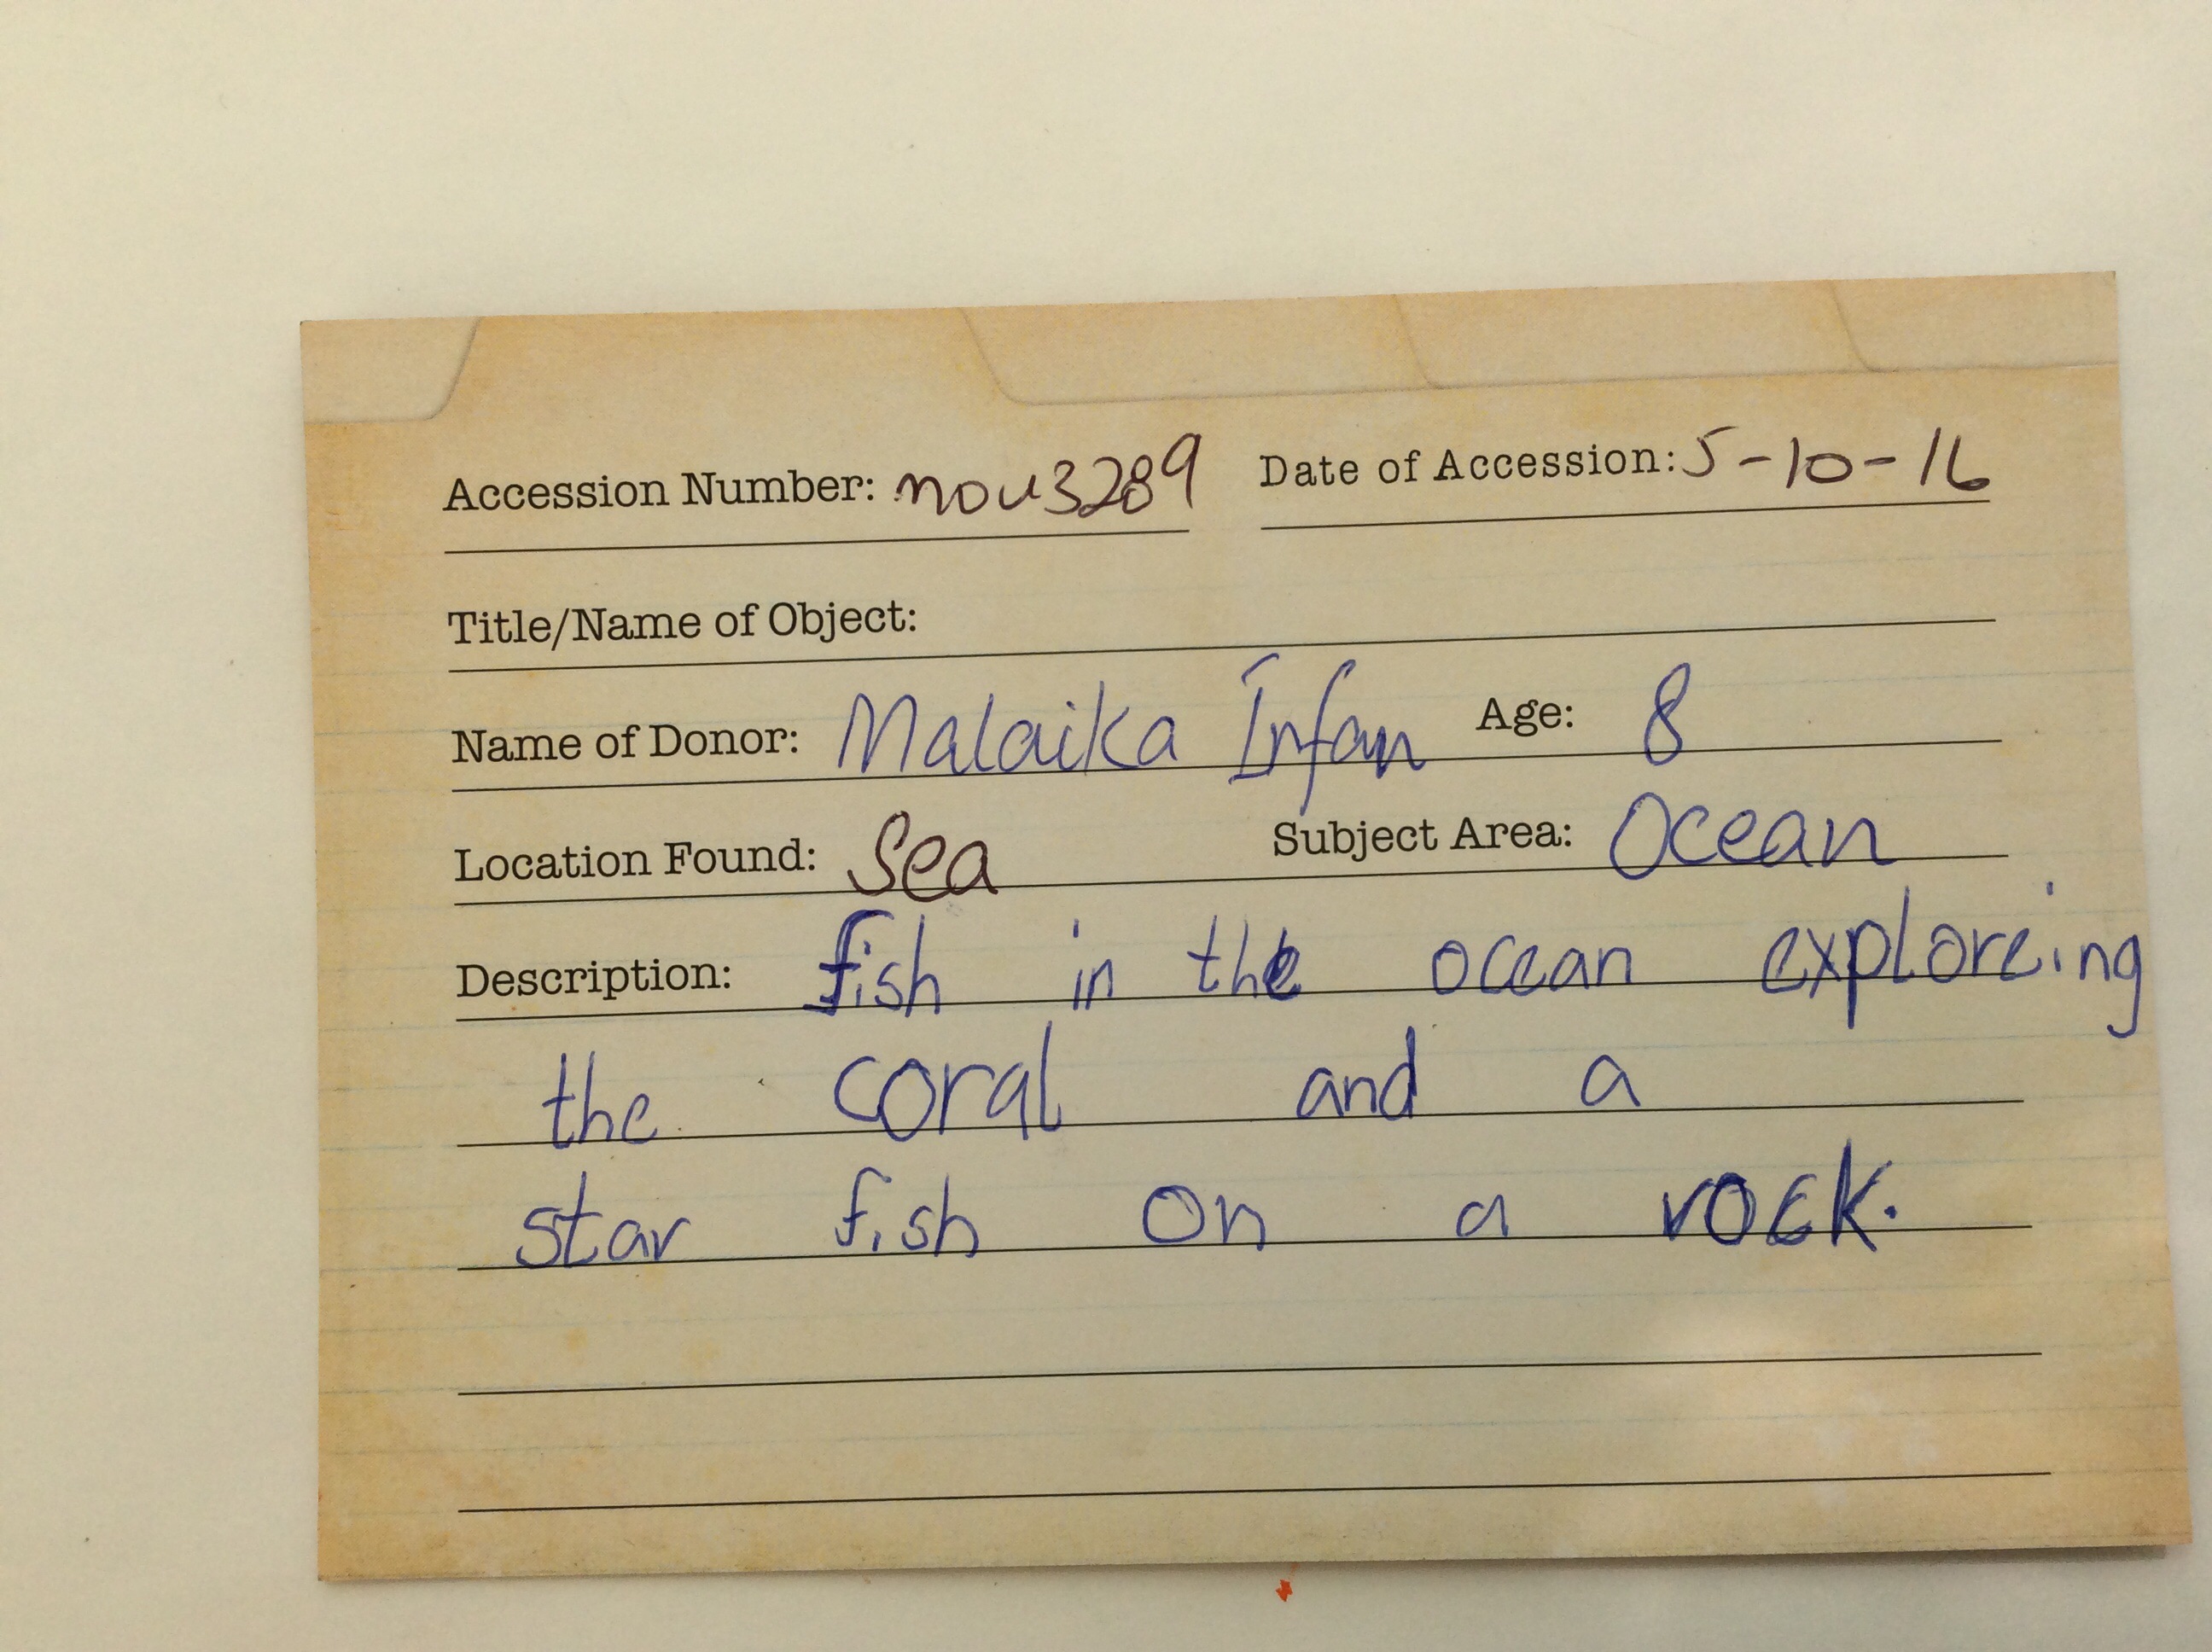 Accession Number: nou3289 Date of Accession: 5-10-16
Title/Name of Object:
Name of Donor: Malaika Irfan Age: 8
Location Found: Sea Subject Area: Ocean
Description: fish in the ocean exploreing
the coral and a
star fish on a rock.